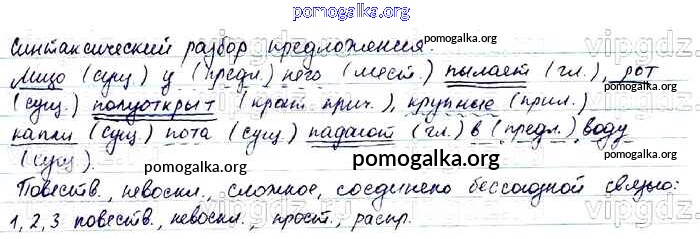 pomogalka.org
Синтаксический разбор предложения.
pomogalka.org
Лицо (сущ.) у (предл.) него (мест.) пылает (гл.), рот
(сущ.) полуоткрыт (крат. прич.), крупные (прил.)
pomogalka.org
капли (сущ.) пота (сущ.) падают (гл.) в (предл.) воду
(сущ.).
pomogalka.org
pomogalka.org
Повеств., невоскл., сложное, соединено бессоюзной связью:
1, 2, 3 повеств., невоскл., прост., распр.